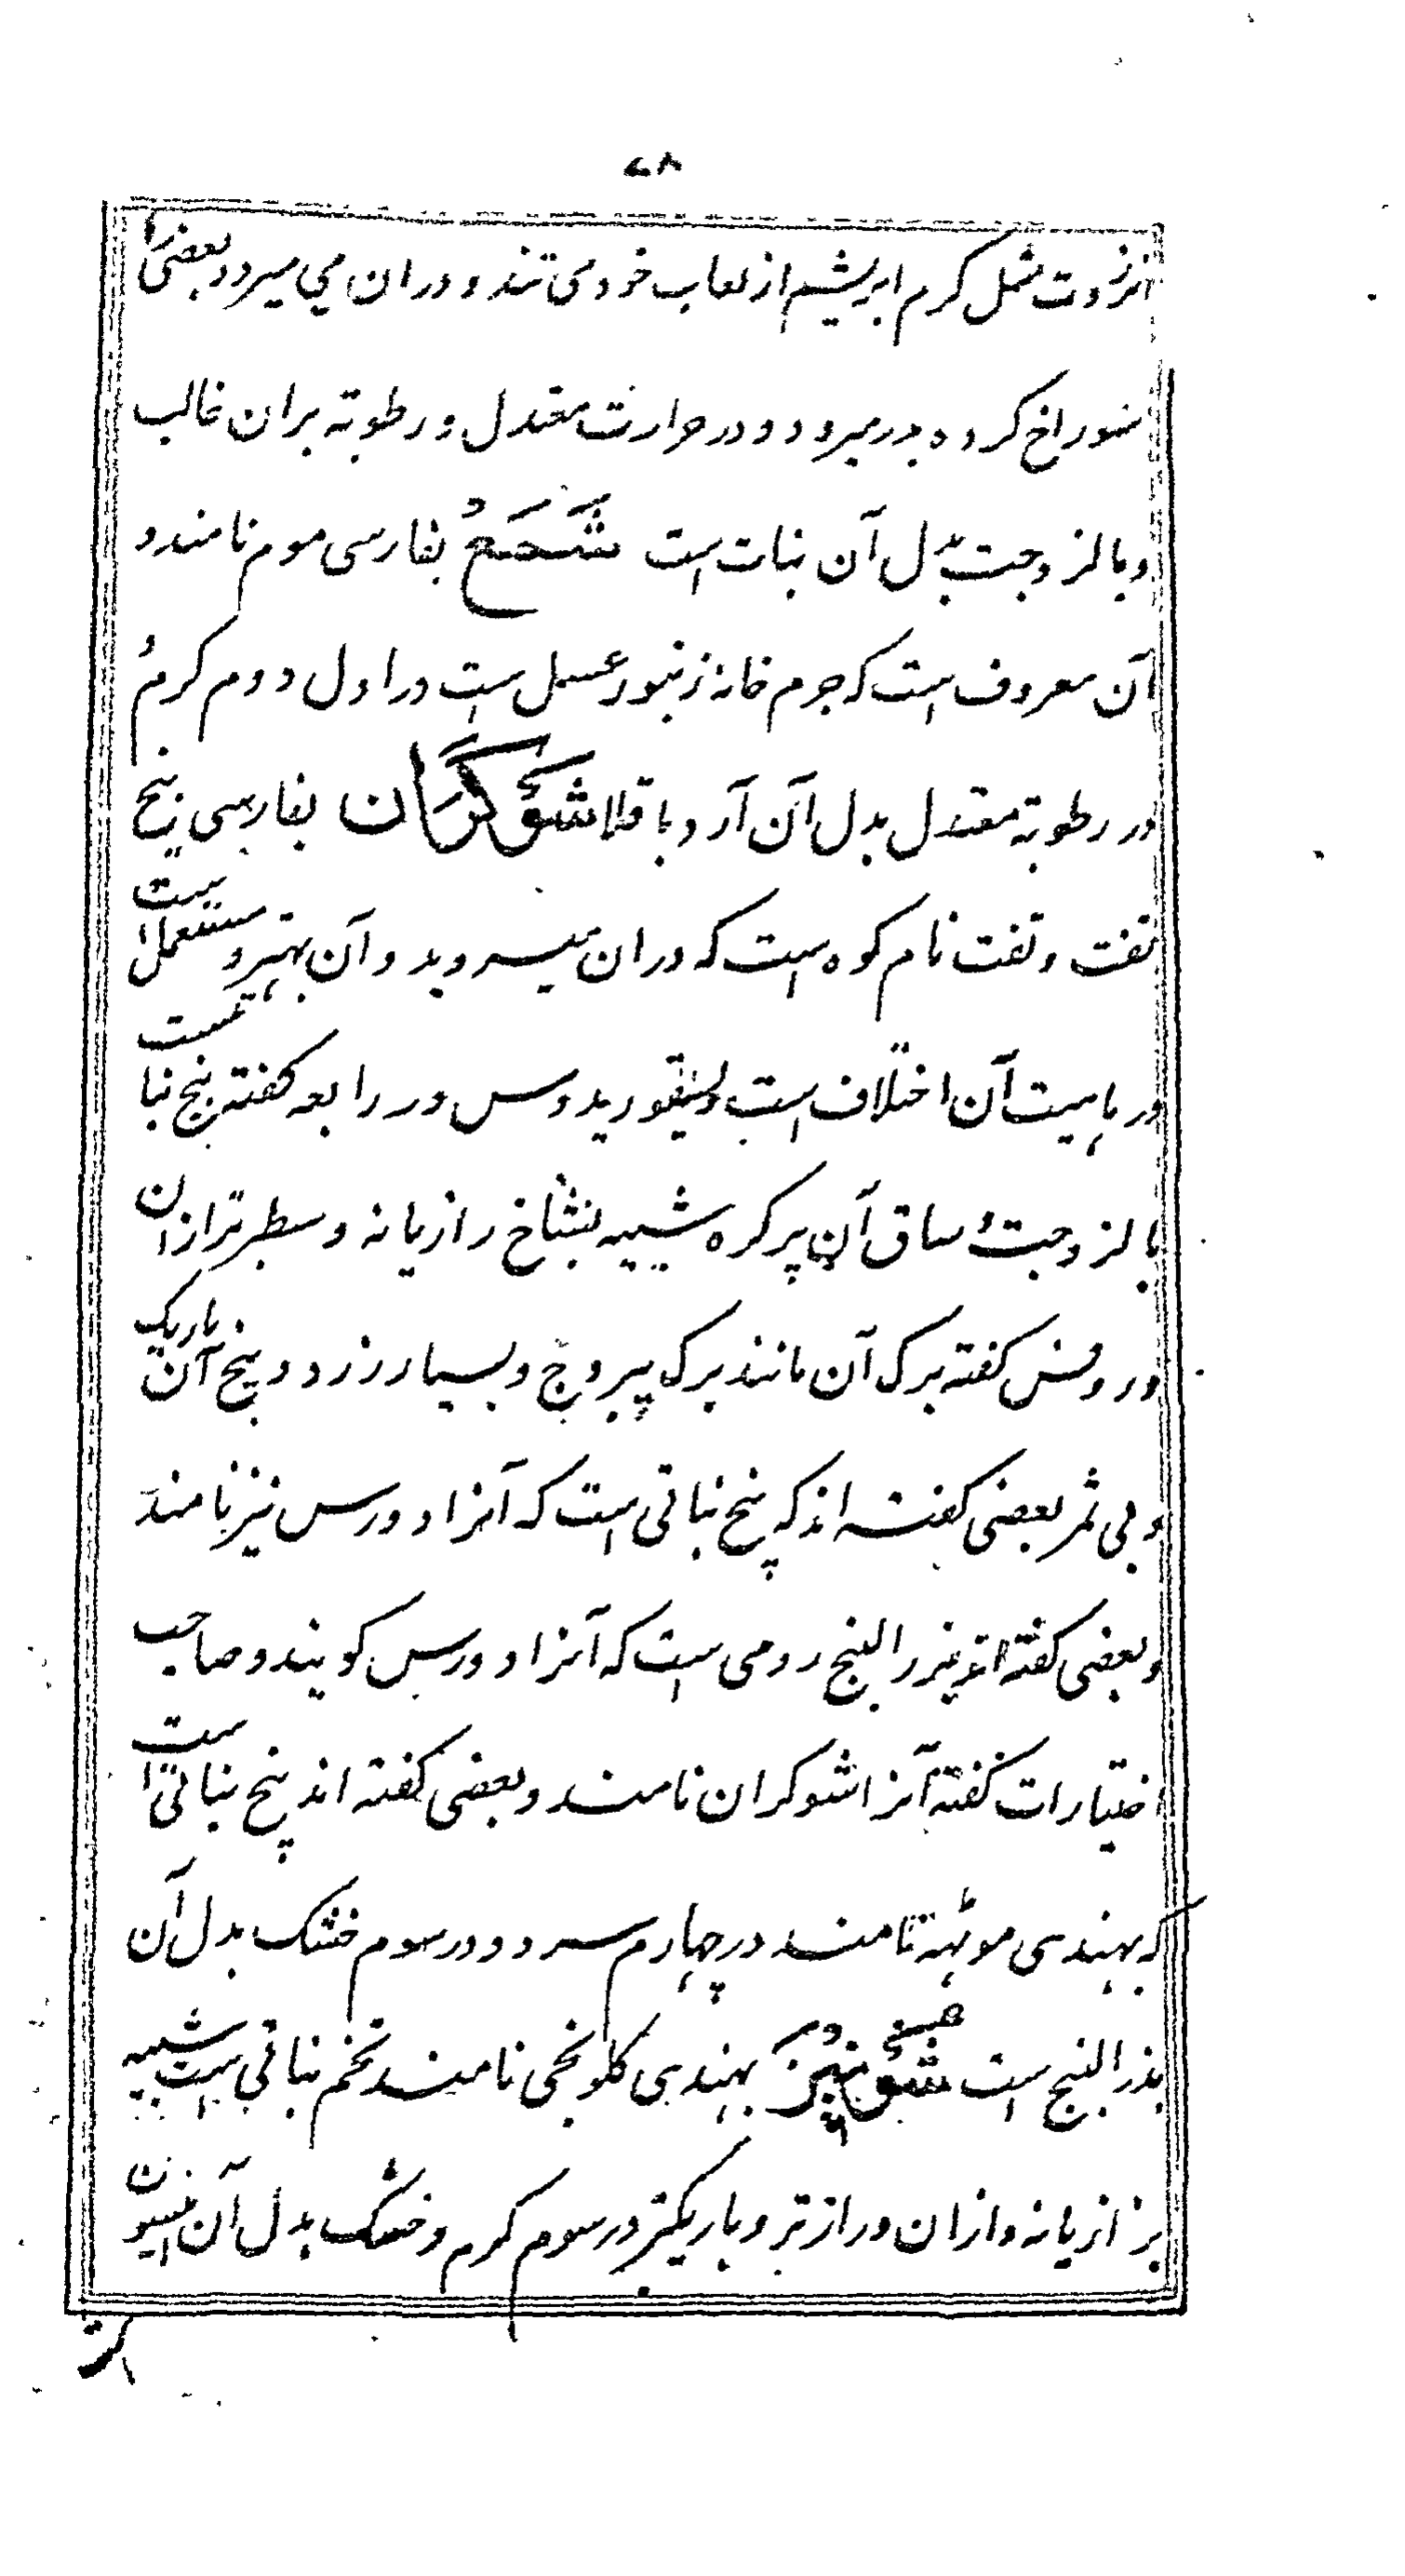 ۷۸
انزروت مثل کرم ابریشم از لعاب خود می تند و دران می میرد و بعضی را
سوراخ کرده بدر میرود و در حرارت معتدل و رطوبة بران غالب
و با لزوجت بدل آن نبات است شَمَعٌ بفارسی موم نامند و
آن معروف است که جرم خانهٔ زنبور عسل است در اول دوم کرم و
در رطوبة معتدل بدل آن آرد باقلا شوکران بفارسی بیخ
تفت و تفت نام کوه است که دران میروید و آن بهتر و مستعمل است
در ماهیت آن اختلاف است دیسقوریدوس در رابعه کفته بیخ نباتیست
با لزوجت ساق آن پر کره شبیه بشاخ رازیانه و سطبرتر ازان
و روفس کفته برک آن مانند برک یبروج و بسیار زرد و بیخ آن باریک
و بی ثمر بعضی کفته اند که بیخ نباتی است که آنرا دورس نیز نامند
و بعضی کفته اند بزر البنج رومی است که آنرا دورس کویند و صاحب
اختیارات کفته آنرا شوکران نامند و بعضی کفته اند بیخ نباتی است
که بهندی موٹہہ نامند در چهارم سرد و در سوم خشک بدل آن
بذر البنج است شونیز بهندی کلونجی نامند تخم نباتی است شبیه
برازیانه و ازان درازتر و باریکتر در سوم کرم و خشک بدل آن انیسون
است